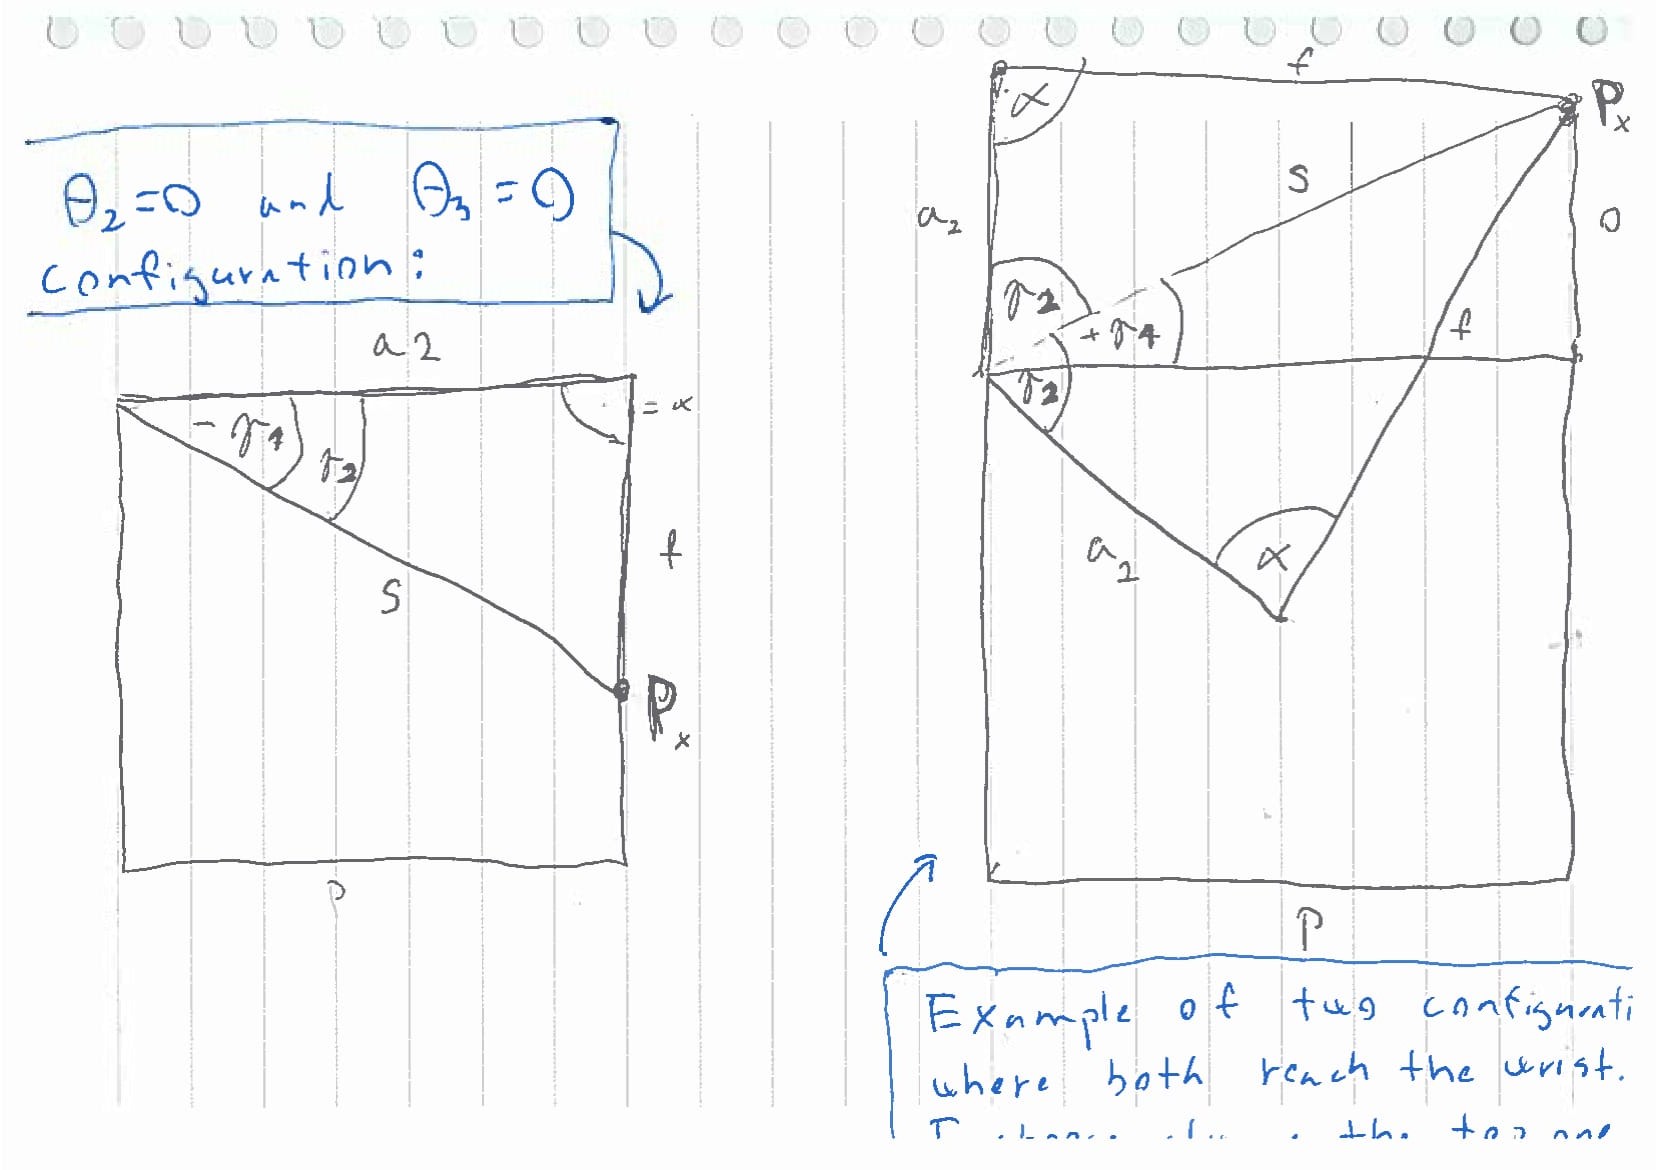 θ₂=0 and θ₃=0
configuration:
a2
-γ1
γ2
= α
f
S
Pₓ
P
f
α
Pₓ
S
a₂
0
γ2
+γ4
f
γ2
a₂
α
P
Example of two configurati
where both reach the wrist.
the top one